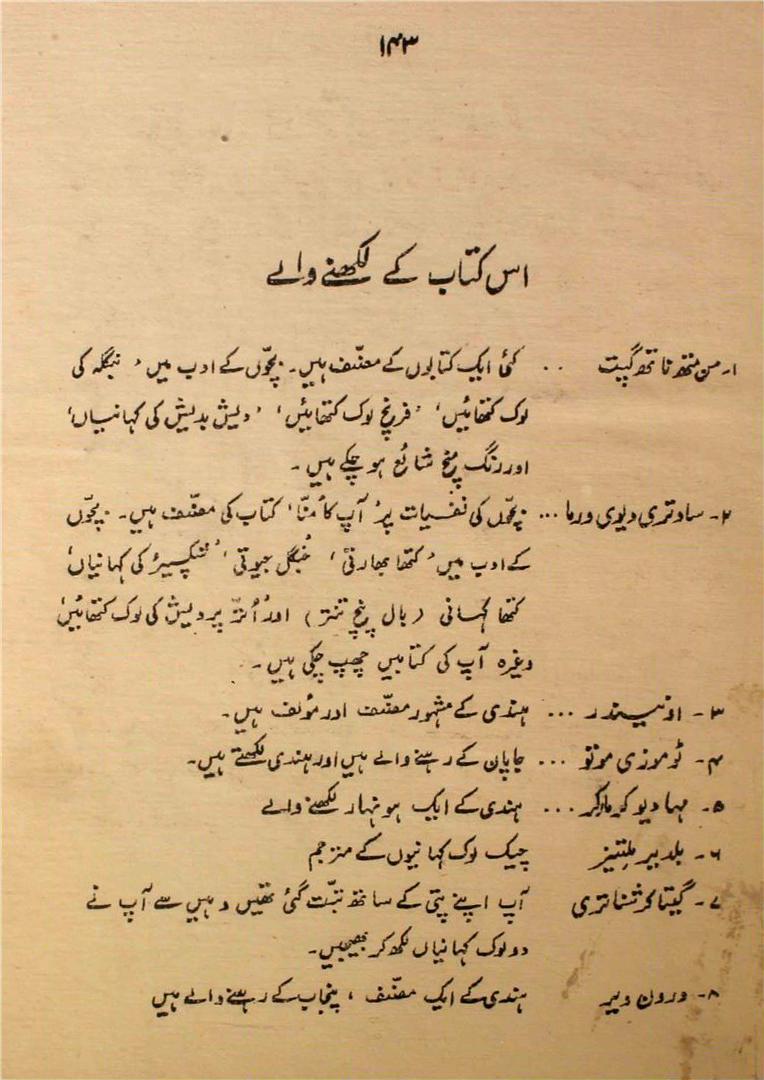 ۱۴۳
اس کتاب کے لکھنے والے
۱۔ من متھ ناتھ گپت .. کئی ایک کتابوں کے مصنّف ہیں۔ بچّوں کے ادب میں ' بنگلہ کی
لوک کتھائیں' ' فرنچ لوک کتھائیں' ' دیش بدیش کی کہانیاں'
اور رنگ منچ شائع ہو چکے ہیں۔
۲۔ ساوتری دیوی ورما ... بچّوں کی نفسیات پر آپ کا 'منّا' کتاب کی مصنّف ہیں۔ بچّوں
کے ادب میں ' کتھا بھارتی' ' جنگل جیوتی' ' شیکسپیئر کی کہانیاں'
کتھا کہانی (بال پنچ تنتر) اور 'اُتّر پردیش کی لوک کتھائیں'
وغیرہ آپ کی کتابیں چھپ چکی ہیں۔
۳۔ اونیندر ... ہندی کے مشہور مصنّف اور مؤلف ہیں۔
۴۔ ٹوموزی موتو ... جاپان کے رہنے والے ہیں اور ہندی لکھتے ہیں۔
۵۔ مہادیو کرمارکر ... ہندی کے ایک ہونہار لکھنے والے
۶۔ بلدبیر ملتیز چیک لوک کہانیوں کے مترجم
۷۔ گیتا کرشناتری آپ اپنے پتی کے ساتھ تبّت گئی تھیں وہیں سے آپ نے
دو لوک کہانیاں لکھ کر بھیجیں۔
۸۔ ورون ویر ہندی کے ایک مصنّف، پنجاب کے رہنے والے ہیں